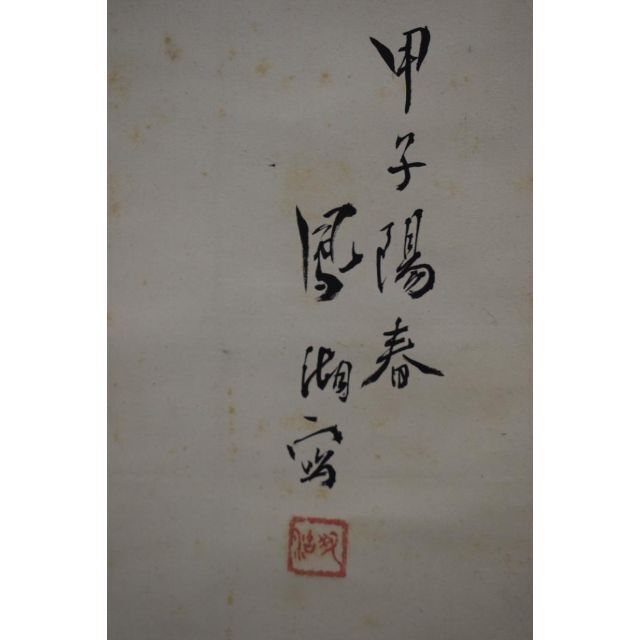 甲子陽春
鳳湖寫